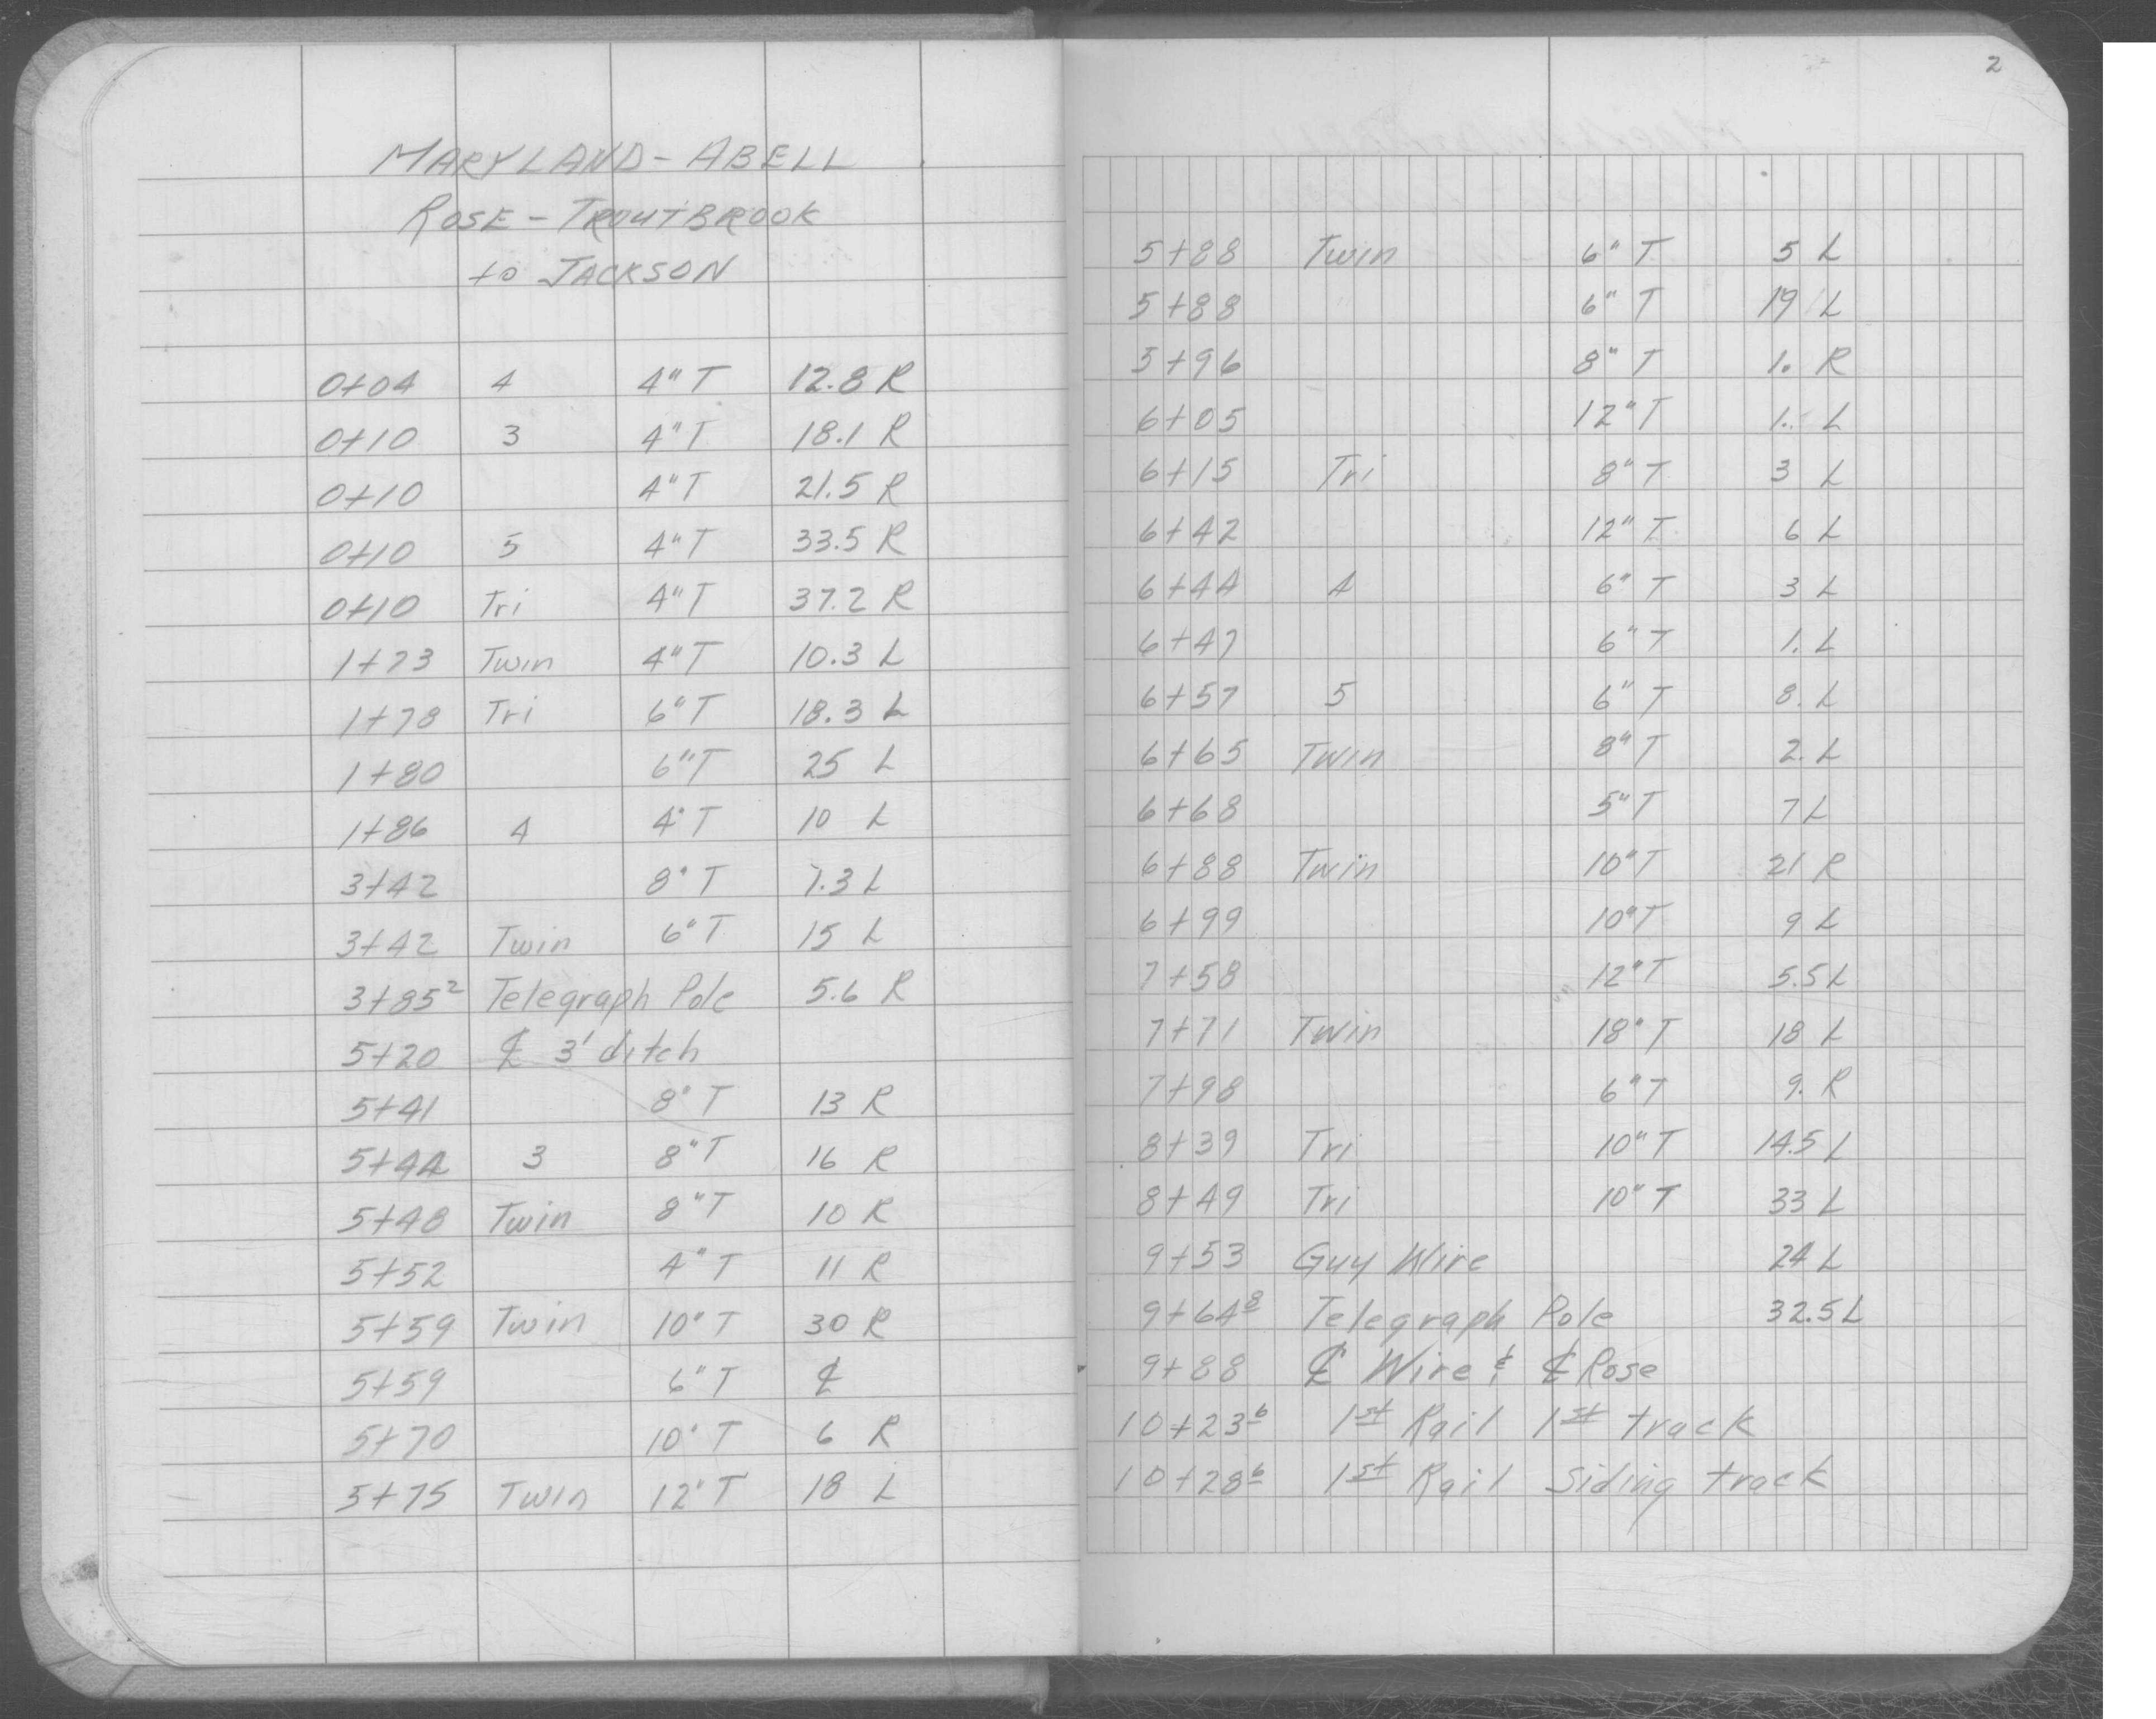 MARYLAND - ABELL
ROSE - TROUTBROOK
to JACKSON
0+04 4 4" T 12.8 R
0+10 3 4" T 18.1 R
0+10 4" T 21.5 R
0+10 5 4" T 33.5 R
0+10 Tri 4" T 37.2 R
1+73 Twin 4" T 10.3 L
1+78 Tri 6" T 18.3 L
1+80 6" T 25 L
1+86 4 4" T 10 L
3+42 8" T 7.3 L
3+42 Twin 6" T 15 L
3+85² Telegraph Pole 5.6 R
5+20 ℄ 3' ditch
5+41 8" T 13 R
5+44 3 8" T 16 R
5+48 Twin 8" T 10 R
5+52 4" T 11 R
5+59 Twin 10" T 30 R
5+59 6" T ℄
5+70 10" T 6 R
5+75 Twin 12" T 18 L
2
5+88 Twin 6" T 5 L
5+88 6" T 19 L
5+96 8" T 1. R
6+05 12" T 1. L
6+15 Tri 8" T 3 L
6+42 12" T 6 L
6+44 4 6" T 3 L
6+47 6" T 1. L
6+57 5 6" T 8. L
6+65 Twin 8" T 2. L
6+68 5" T 7 L
6+88 Twin 10" T 21 R
6+99 10" T 9 L
7+58 12" T 5.5 L
7+71 Twin 18" T 18 L
7+98 6" T 9. R
8+39 Tri 10" T 14.5 L
8+49 Tri 10" T 33 L
9+53 Guy Wire 24 L
9+64⁸ Telegraph Pole 32.5 L
9+88 ℄ Wire & ℄ Rose
10+23⁶ 1st Rail 1st track
10+28⁶ 1st Rail Siding track